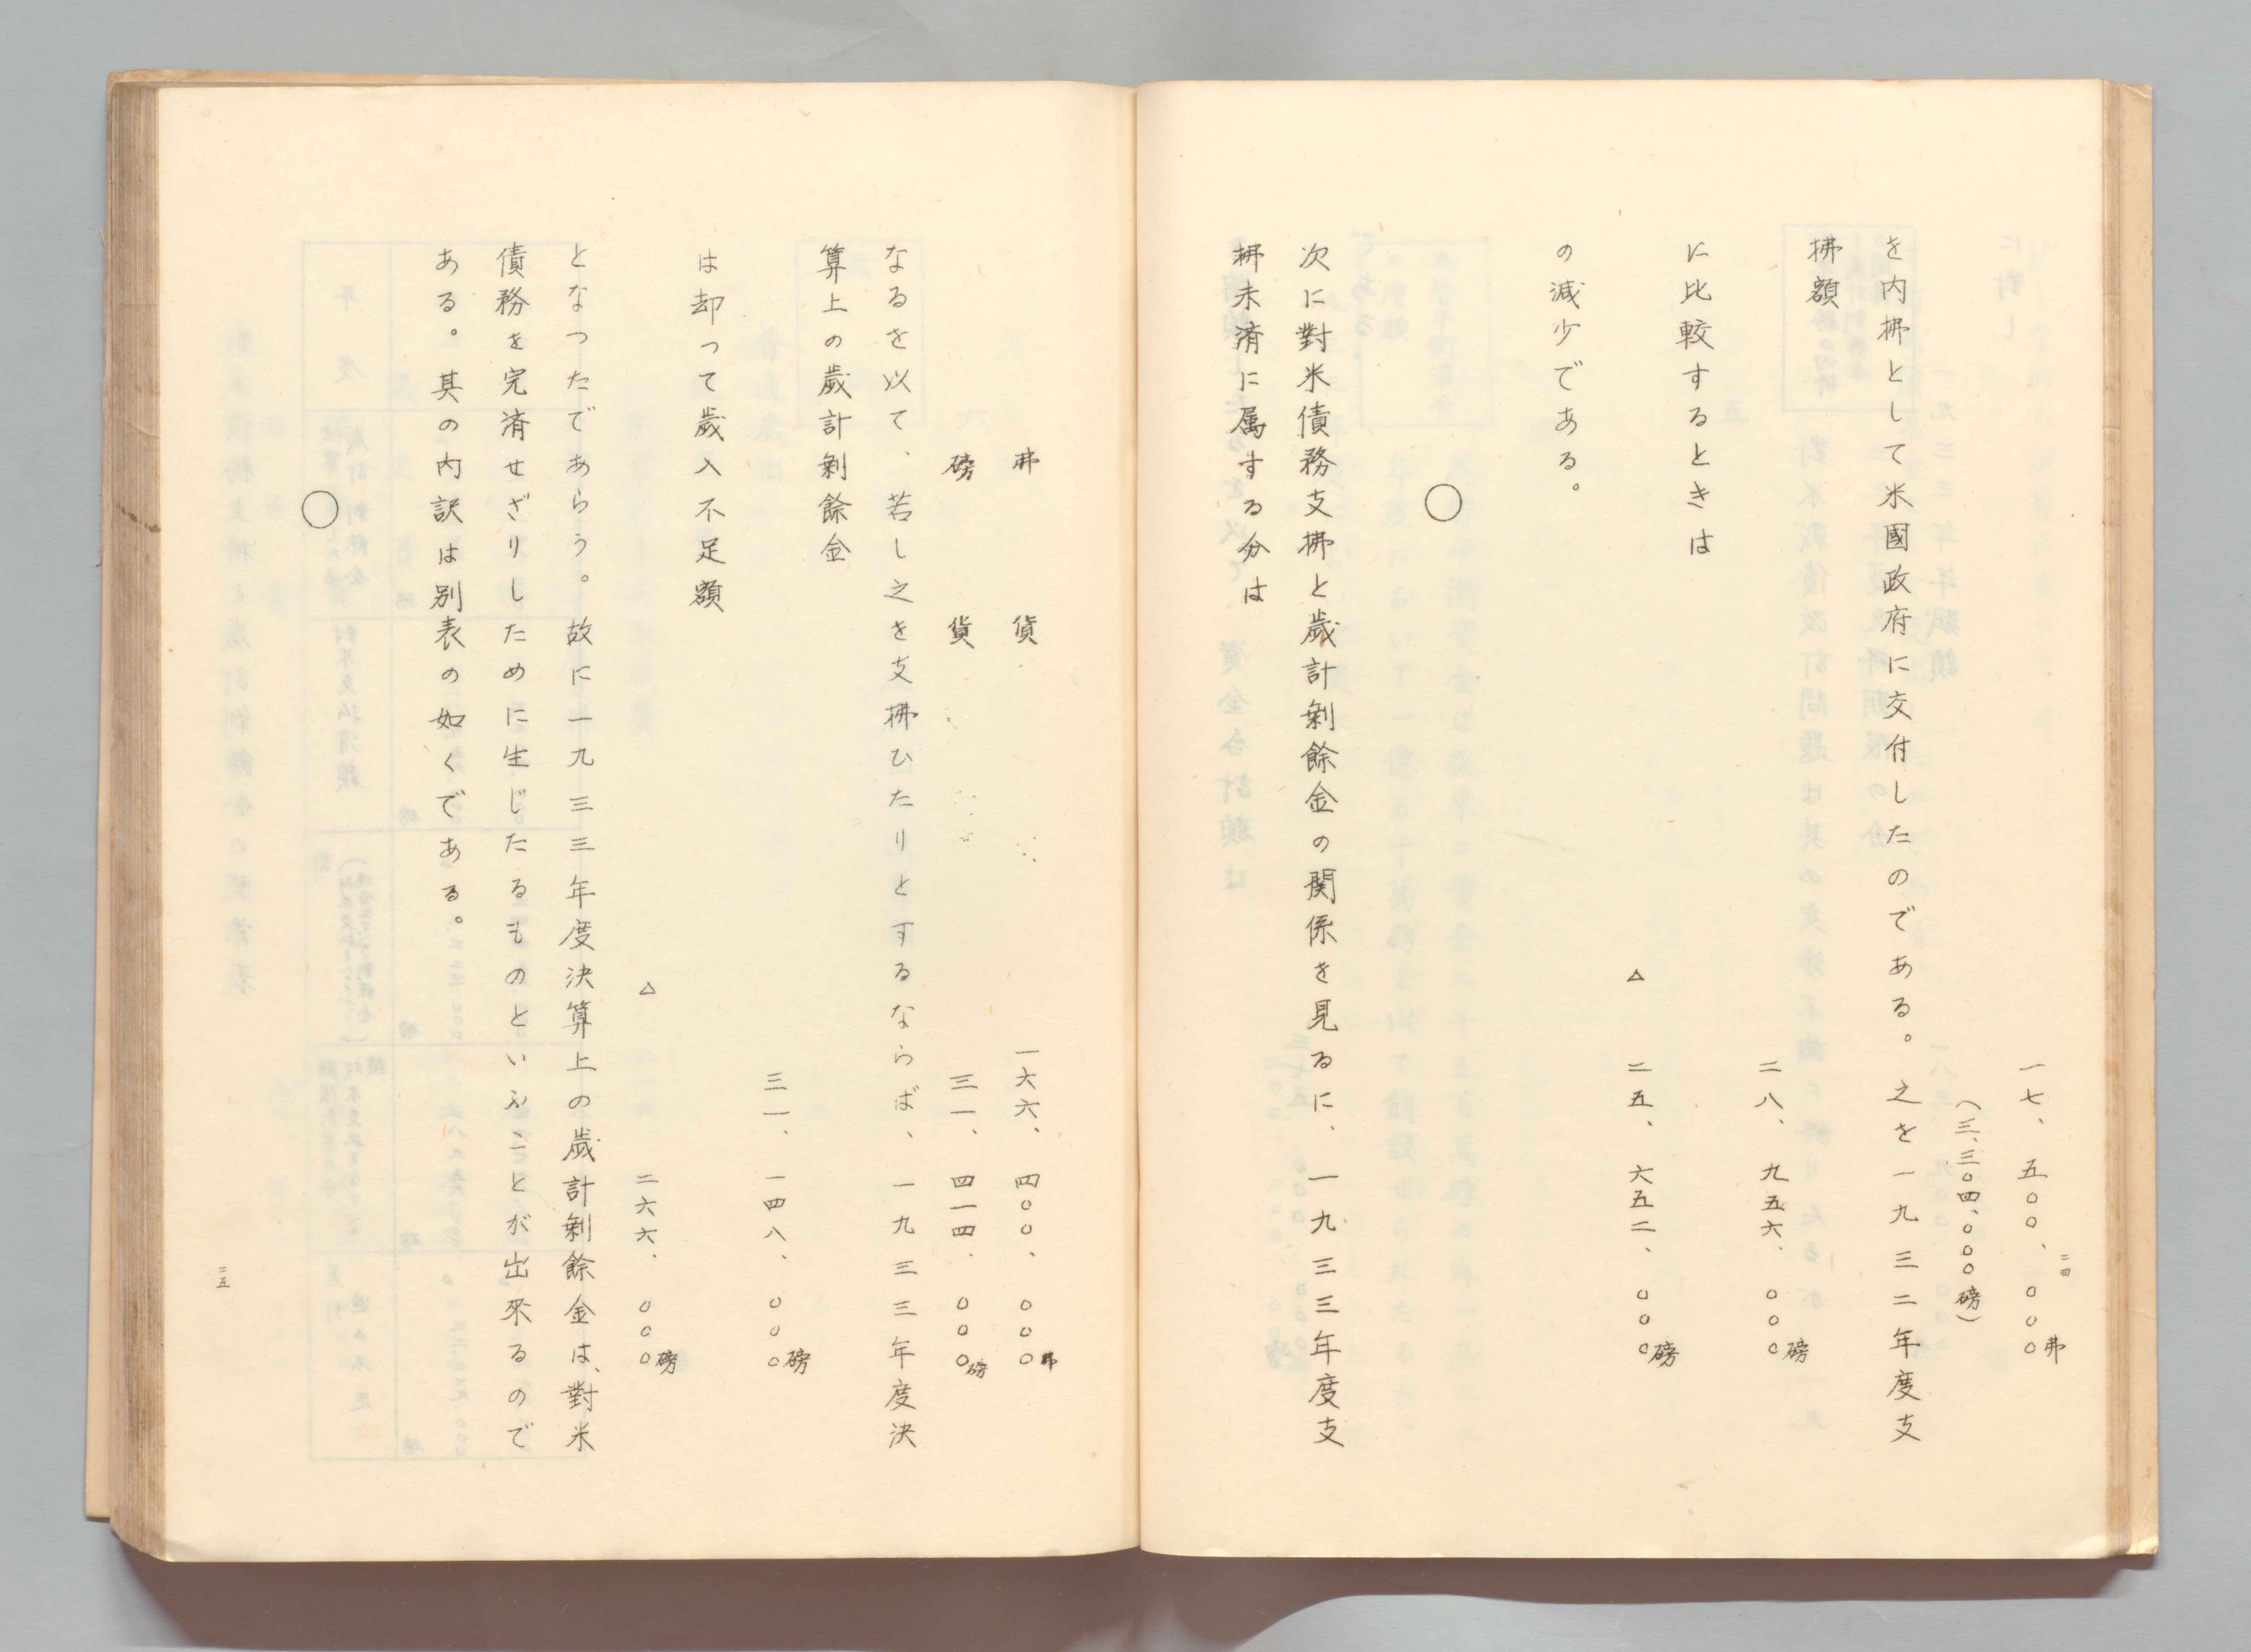 二四
一七、五〇〇、〇〇〇弗
(三、三〇四、〇〇〇磅)
を内拂として米國政府に交付したのである。之を一九三二年度支
拂額
二八、九五六、〇〇〇磅
に比較するときは
△二五、六五二、〇〇〇磅
の減少である。
○
次に對米債務支拂と歲計剰餘金の関係を見るに、一九三三年度支
拂未済に属する分は
弗貨 一六六、四〇〇、〇〇〇弗
磅貨 三一、四一四、〇〇〇磅
なるを以て、若し之を支拂ひたりとするならば、一九三三年度決
算上の歲計剰餘金
三一、一四八、〇〇〇磅
は却って歲入不足額
△二六六、〇〇〇磅
となつたであらう。故に一九三三年度決算上の歲計剰餘金は、對米
債務を完済せざりしために生じたるものといふことが出來るので
ある。其の内訳は別表の如くである。
○
二五